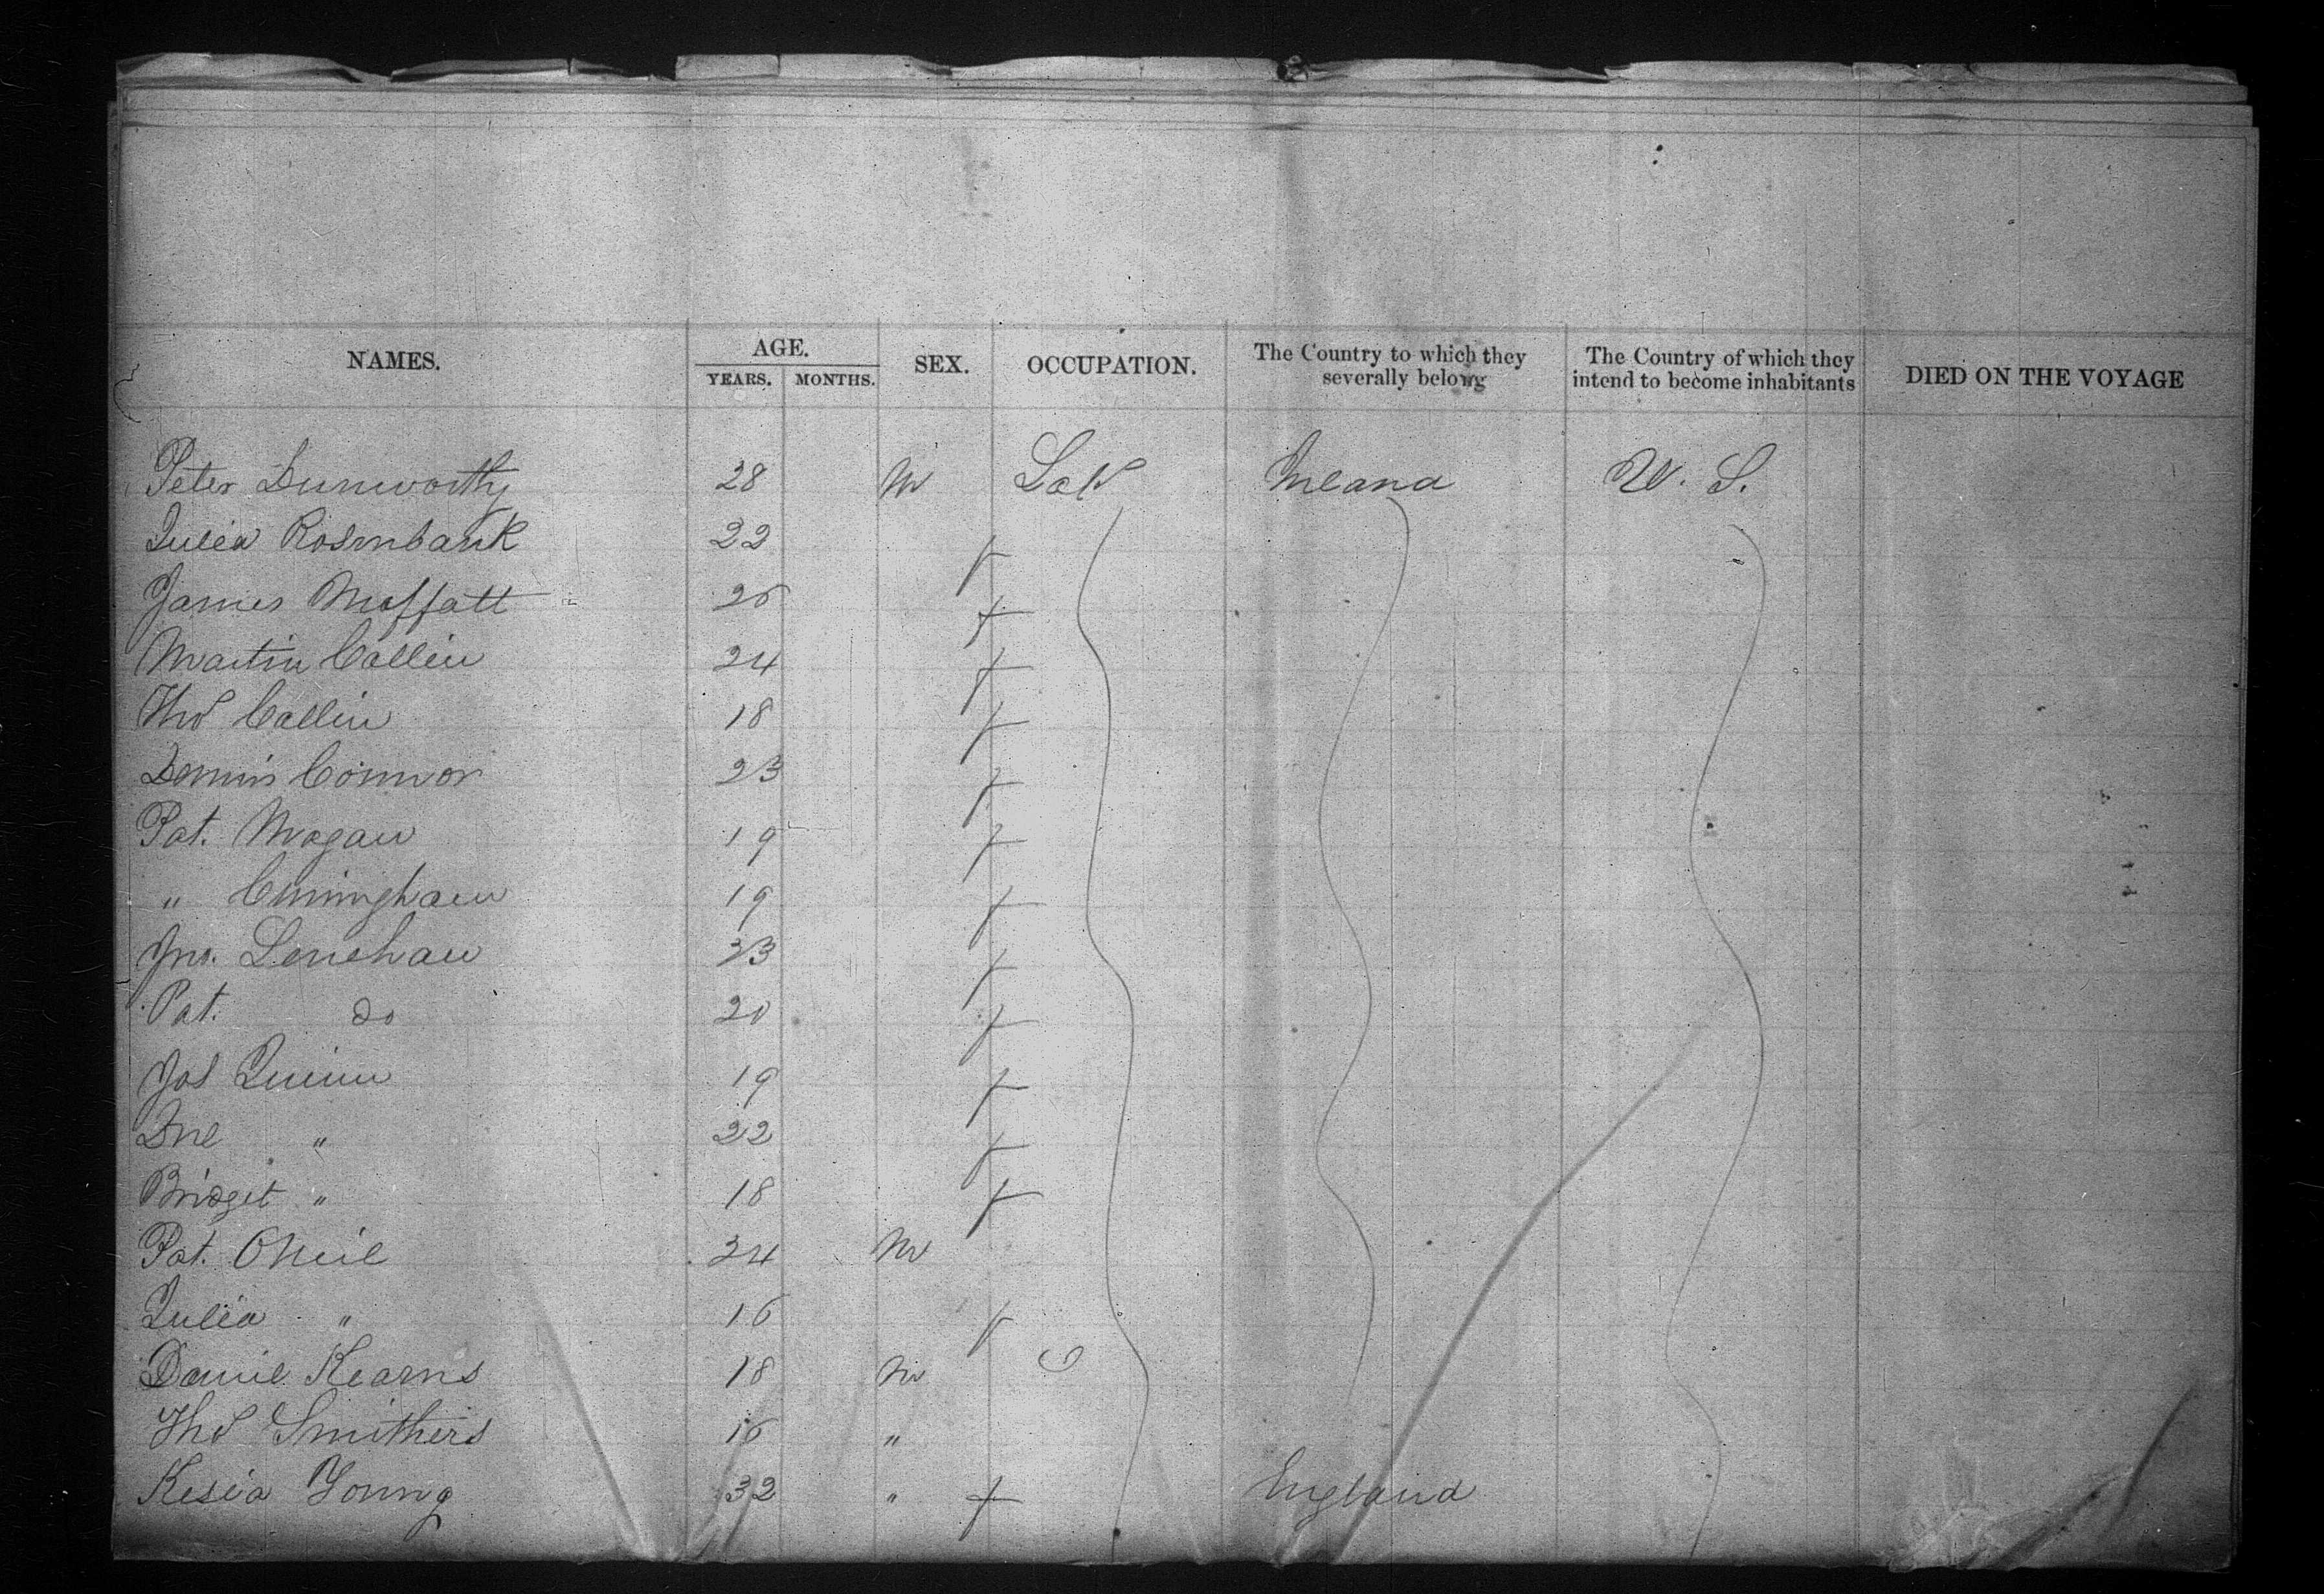 NAMES. AGE. SEX. OCCUPATION. The Country to which they severally belong The Country of which they intend to become inhabitants DIED ON THE VOYAGE
YEARS. MONTHS.
Peter Dunworthy 28 M Lab Ireland U. S.
Julia Rosenbank 22 f
James Moffatt 26 f
Martin Callin 24 f
Thos Callin 18 f
Dennis Connor 23 f
Pat. Magan 19 f
" Cuningham 19 f
Jno. Lenehan 23 f
Pat. do 20 f
Jos Quinn 19 f
" 22 f
Bridget " 18 f
Pat. ONeil 24 M
Julia " 16 f
Daniel Kearns 18 M
Thos Smithers 16 "
Kesia Young 32 " f England